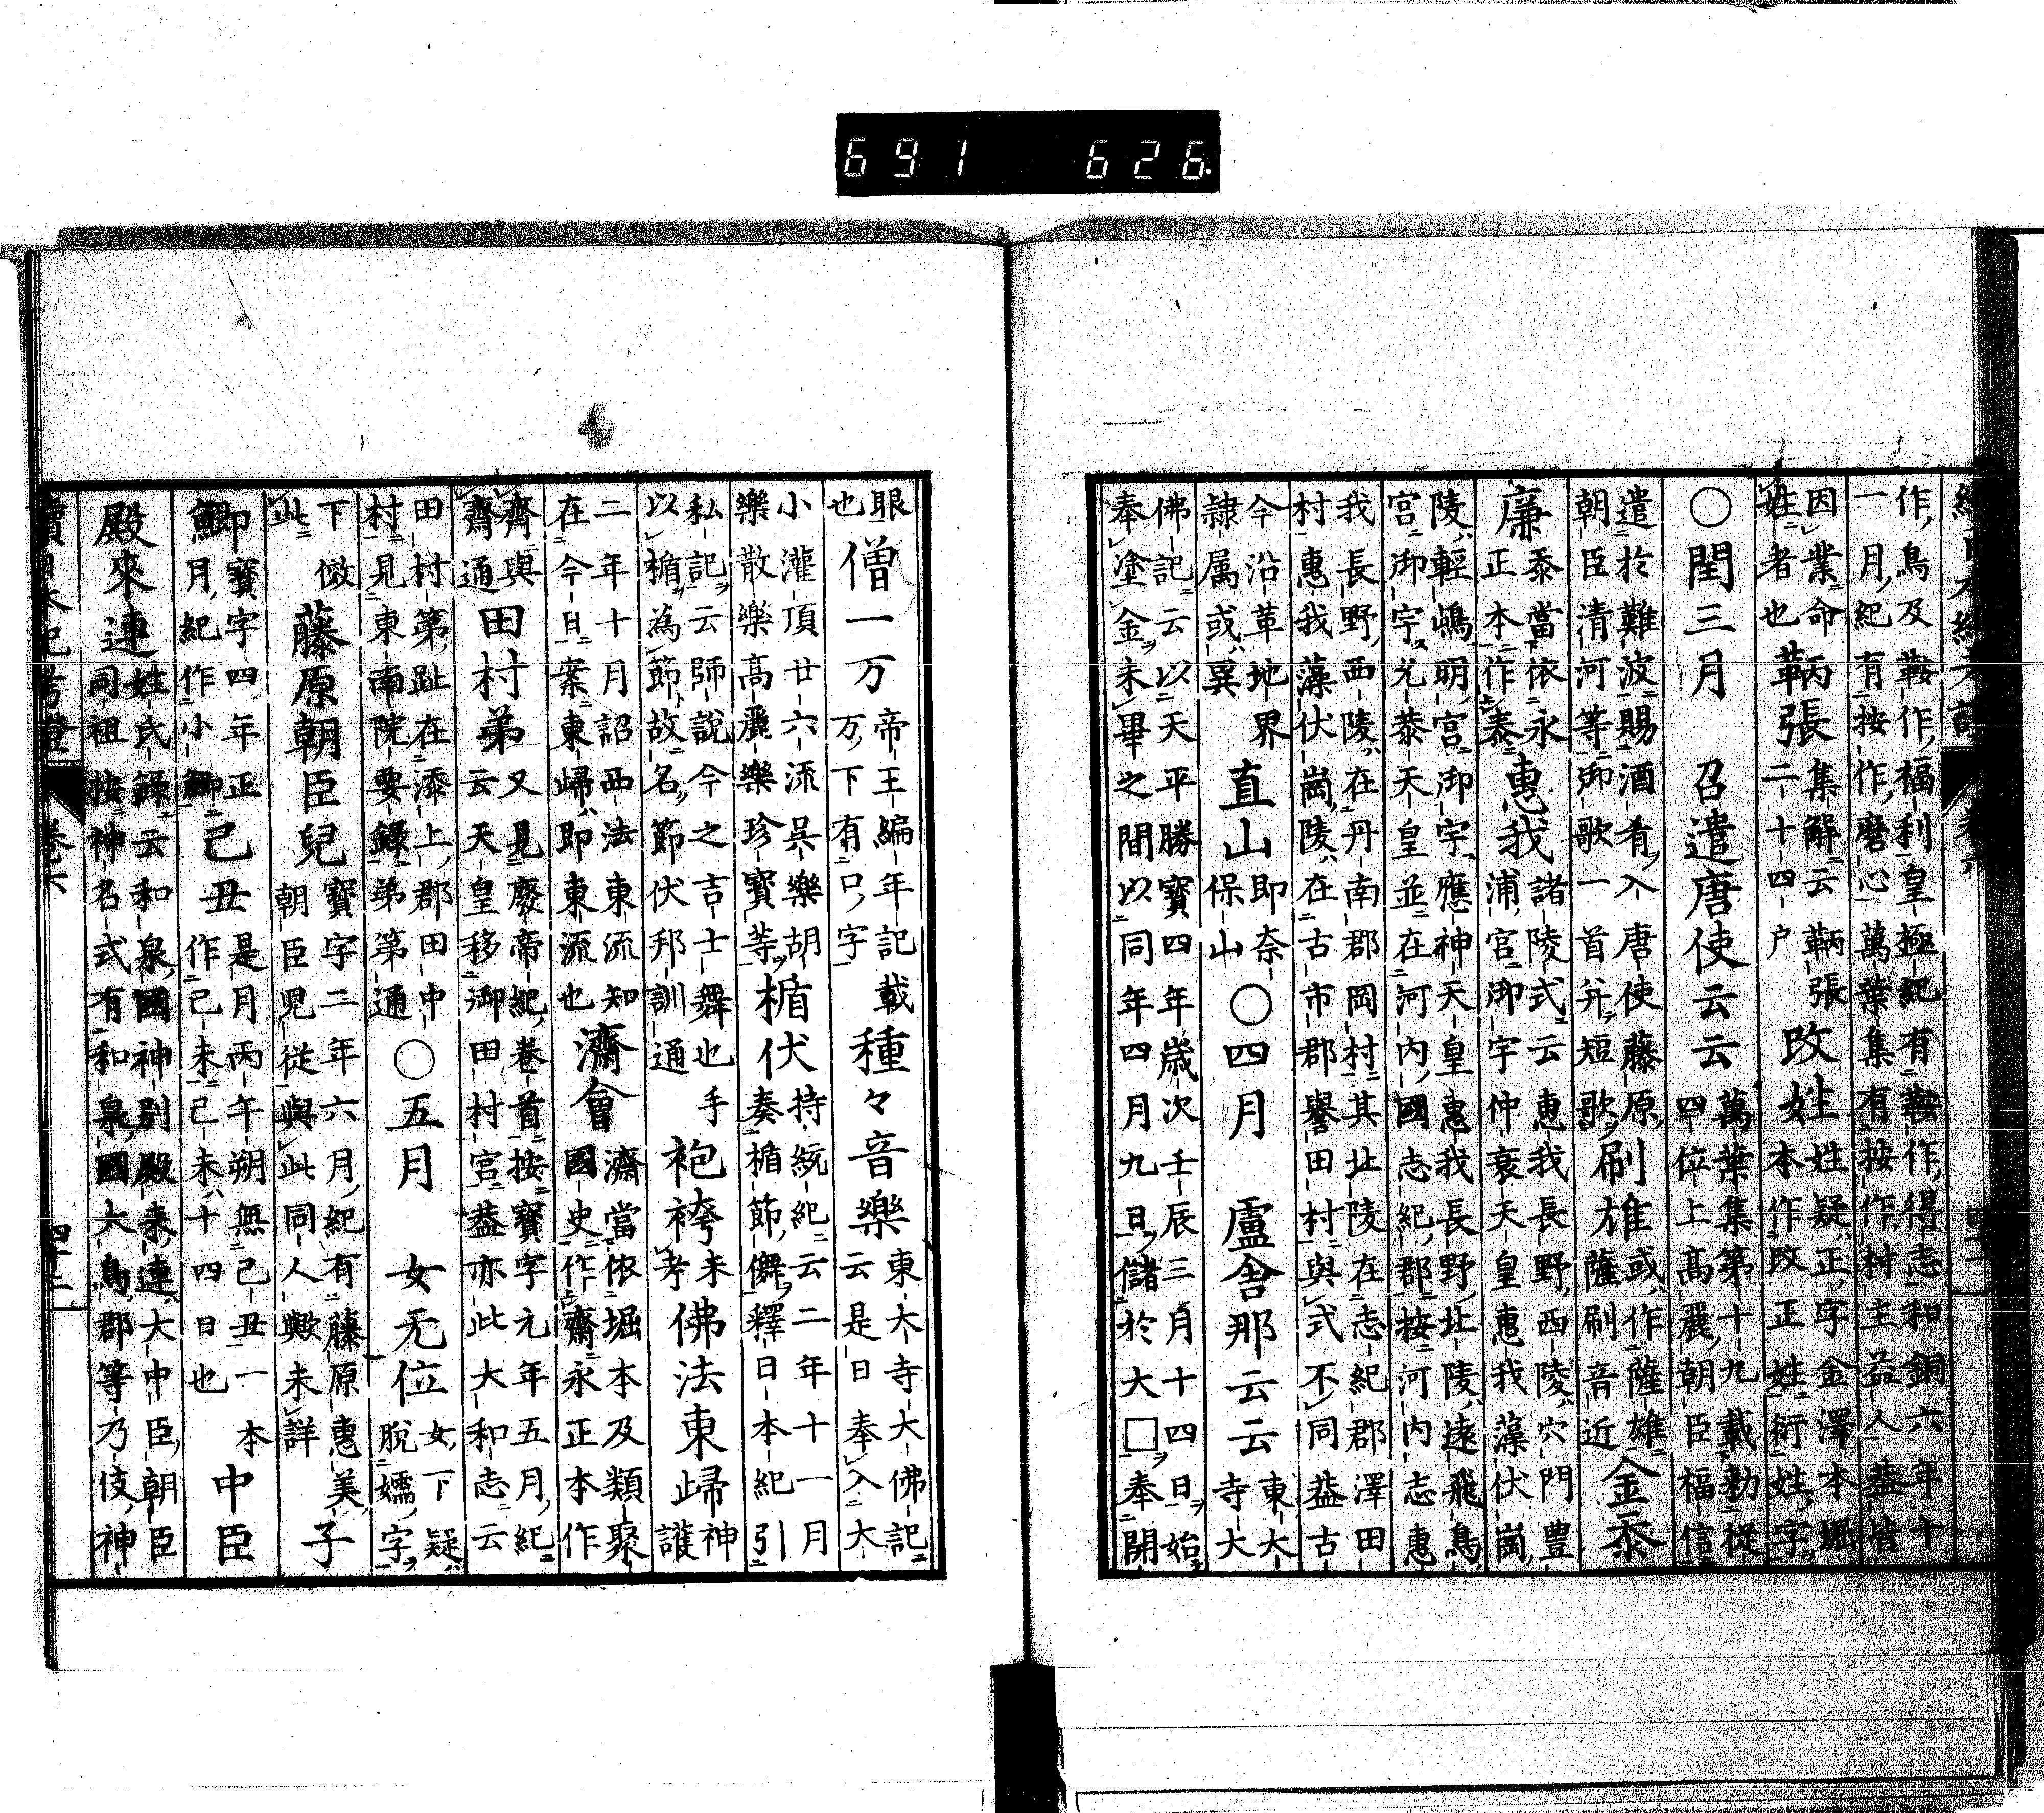 691 626
作鳥及鞍作福利皇極紀有鞍作得志和銅六年十
一月紀有按作磨心萬葉集有按作村主益人益皆
因業命
姓者也
鞆張
集解云鞆張
二十四户
改姓
姓疑正字金澤本堀
本作改正姓衍姓字
○閏三月 召遣唐使云云
萬葉集第十九載勅從
四位上高麗朝臣福信
遣於難波賜酒肴入唐使藤原
朝臣清河等御歌一首并短歌
刷雄
或作薩雄
薩刷音近
金泰
廉
泰當依永
正本作㤗
惠我
諸陵式云恵我長野西陵穴門豊
浦宮御宇仲哀天皇惠我藻伏崗
陵輕嶋明宮御宇應神天皇惠我長野北陵遠飛鳥
宮御宇允恭天皇並在河内國志紀郡按河内志惠
我長野西陵在丹南郡岡村其北陵在志紀郡澤田
村惠我藻伏崗陵在古市郡譽田村與式不同益古
今沿革地界
隷属或異
直山
即奈
保山
○四月 盧舍那云云
東大
寺大
佛記云以天平勝寳四年歳次壬辰三月十四日始
奉塗金未畢之間以同年四月九日儲於大□奉開
眼
也
僧一万
帝王編年記載
万下有口字
種々音樂
東大寺大佛記
云是日奉入大
小灌頂廿六流呉樂胡
樂散樂高麗樂珍寳等
楯伏
持統紀云二年十一月
奏楯節儛釋日本紀引
私記云師説今之吉士舞也手
以楯為節故名節伏邦訓通
袍袴
未
考
佛法東歸
神
護
二年十月詔西法東流知
在今日案東歸即東流也
濟會
濟當依堀本及類聚
國史作齋永正本作
齊與
齋通
田村苐
又見廢帝紀巻首按寳字元年五月紀
云天皇移御田村宮益亦此大和志云
田村第趾在添上郡田中
村見東南院要録苐第通
○五月 女无位
女下疑
脱孺字
下倣
此
藤原朝臣兒
寳字二年六月紀有藤原惠美
朝臣児從與此同人歟未詳
子
鯽
即寳字四年正
月紀作小鯽
己丑
是月丙午朔無己丑一本
作己未己未十四日也
中臣
殿來連
姓氏録云和泉國神別殿來連大中臣朝臣
同祖按神名式有和泉國大鳥郡等乃伎神
續日本紀考證 巻六 四十二